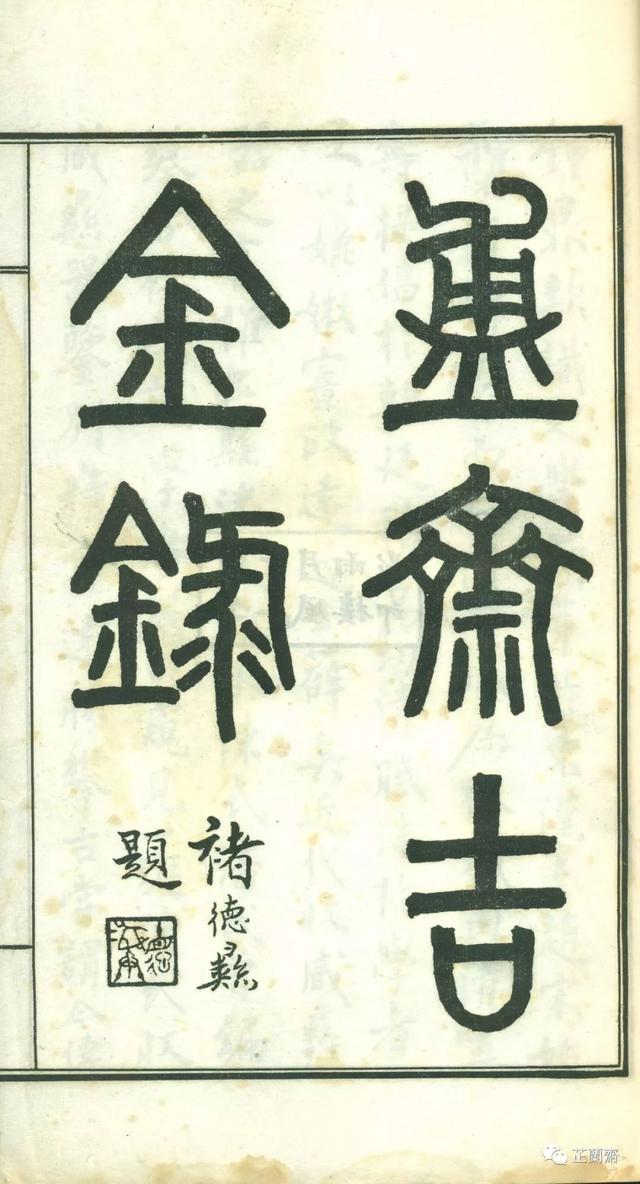 盙齋吉
金錄
褚德彝
題
芷蘭齋